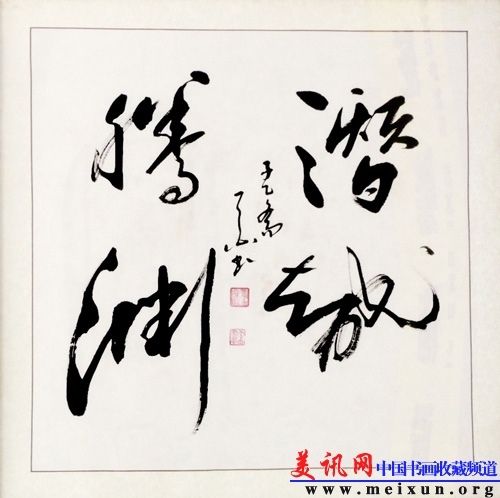 潛龍
騰淵
美讯网 中国书画收藏频道
www.meixun.org